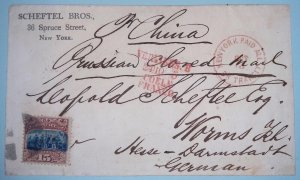 SCHEFTEL BROS.,
36 Spruce Street,
New York.
Pr China
Prussian Closed Mail
NEW YORK PAID ALL
Leopold Scheftel Esq.
Worms
Hesse-Darmstadt
Germany
15